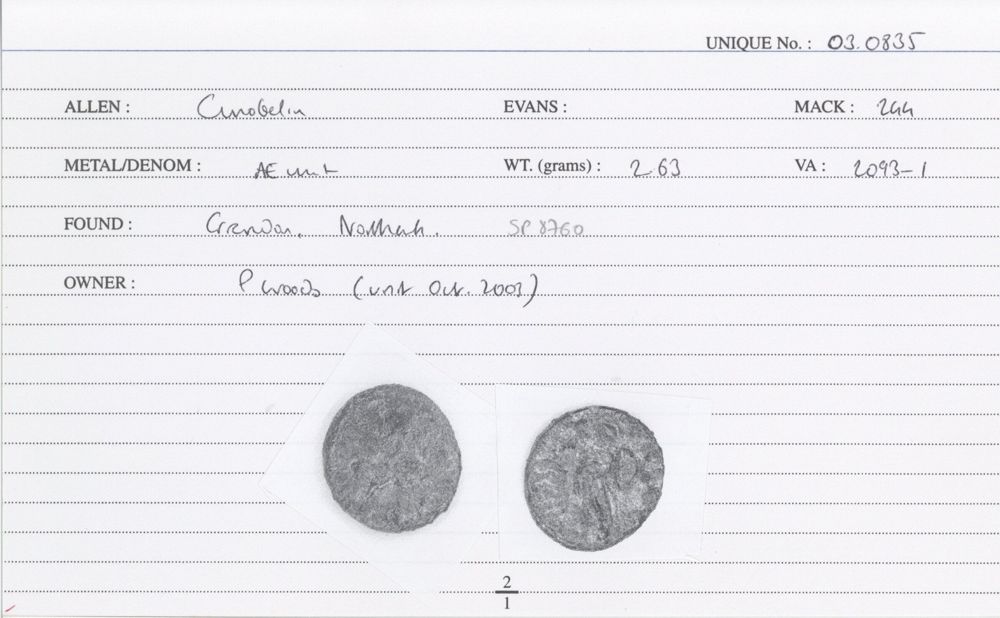 UNIQUE No. : 03.0835
ALLEN : Cunobelin EVANS : MACK : 244
METAL/DENOM : AE unit WT. (grams) : 2.63 VA : 2093-1
FOUND : Grendon, Northants. SP 8760
OWNER : P Woods (until Oct. 2003)
2
1